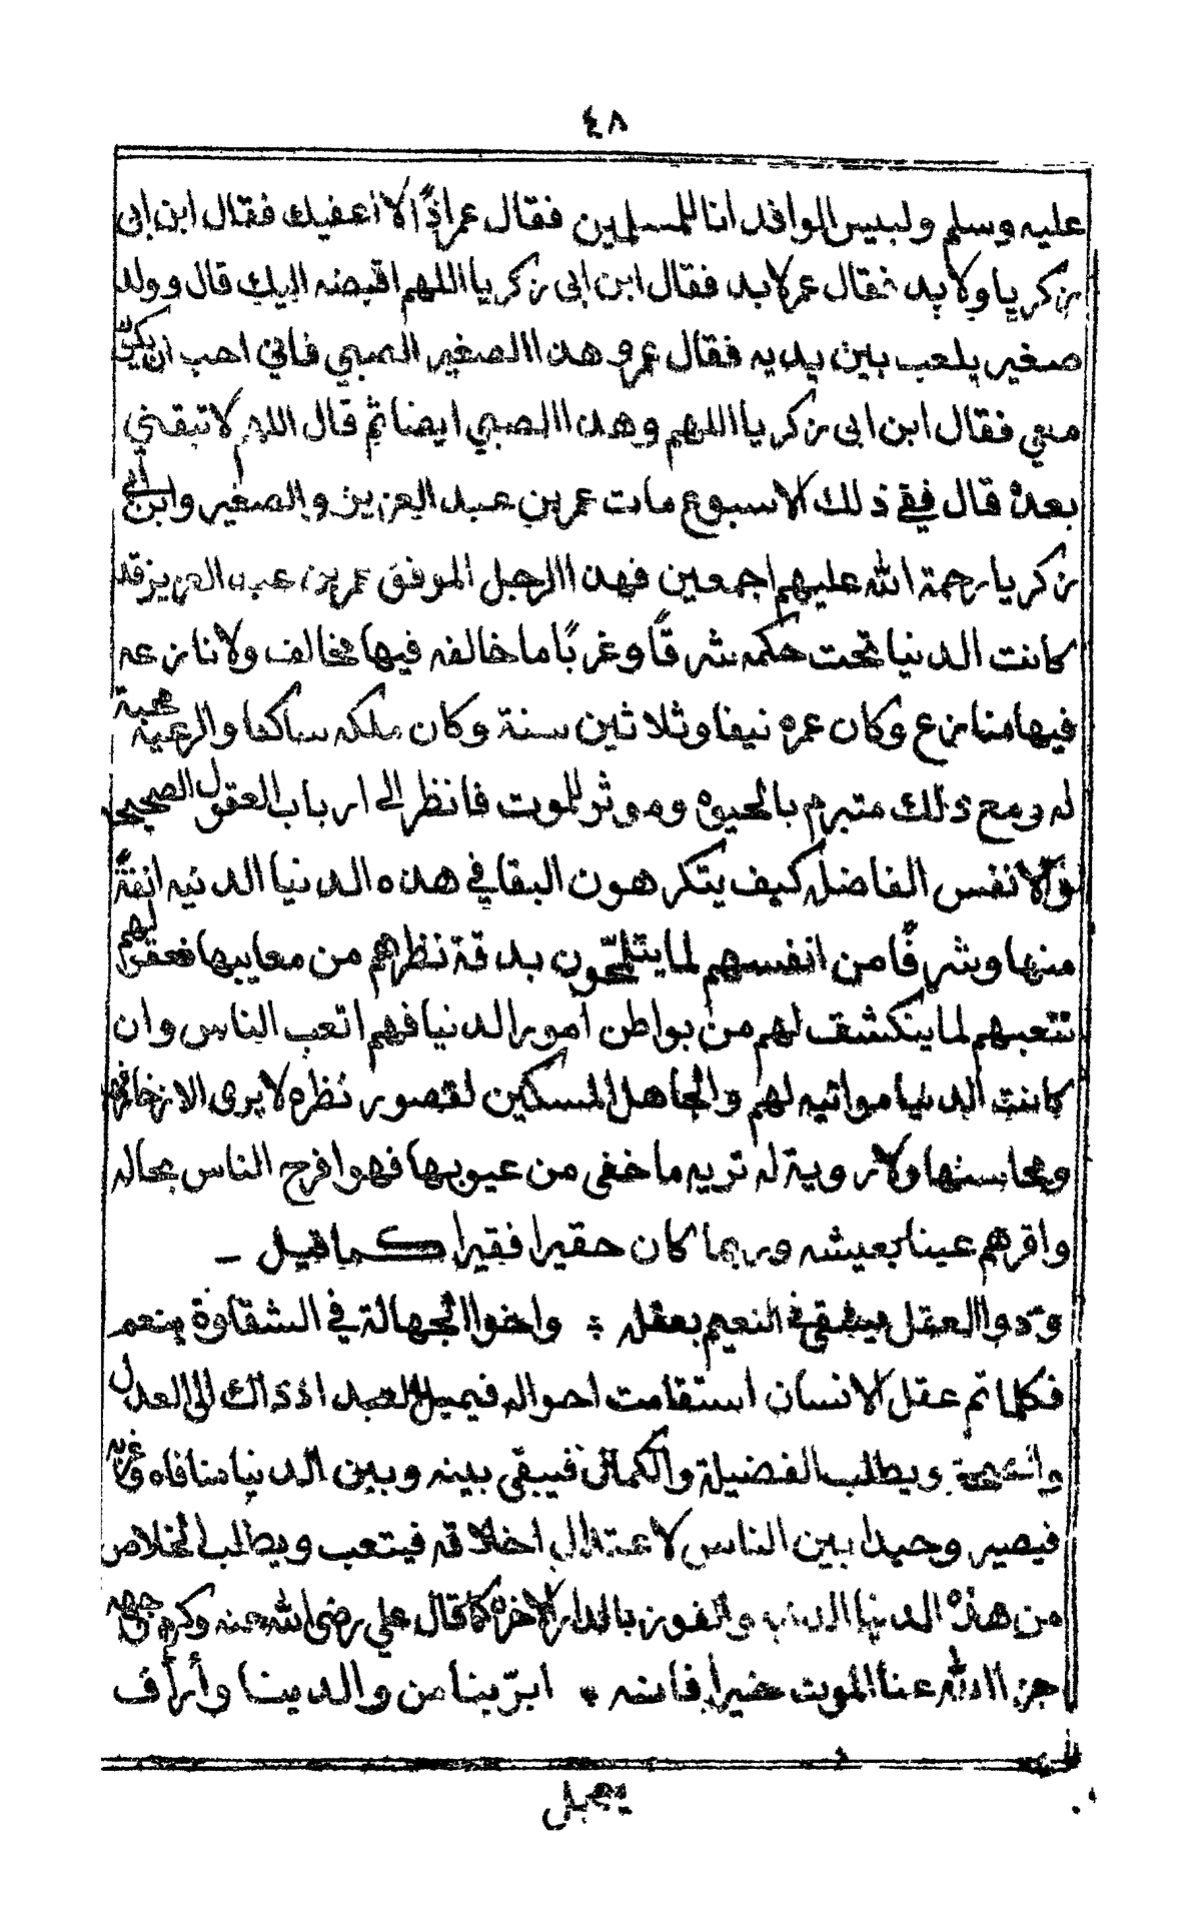 ٤٨
عليه وسلم ولبيس الوافد انا للمسلمين فقال عمر اذًا لا اعفيك فقال ابن ابى
زكريا ولا بد فقال عمر لا بد فقال ابن ابى زكريا اللهم اقبضه اليك قال وولد
صغير يلعب بين يديه فقال عمر وهذا الصغير الصبي فاني احب ان يكون
معي فقال ابن ابى زكريا اللهم وهذا الصبي ايضا ثم قال اللهم لا تبقني
بعده قال ففي ذلك الاسبوع مات عمر بن عبد العزيز والصغير وابن ابى
زكريا رحمة الله عليهم اجمعين فهذا الرجل الموفق عمر بن عبد العزيز قد
كانت الدنيا تحت حكمه شرقًا وغربًا ما خالفه فيها مخالف ولا نازعه
فيها منازع وكان عمره نيفا وثلاثين سنة وكان ملكه ساكنا والرعية محبة
له ومع ذلك متبرم بالحيوه وموثر للموت فانظر الى ارباب العقول الصحيحه
والانفس الفاضله كيف يتكرهون البقا في هذه الدنيا الدنيه انفةً
منها وشرفًا من انفسهم لما يتلمحون بدقة نظرهم من معايبها فعقولهم
تتعبهم لما ينكشف لهم من بواطن امور الدنيا فهم اتعب الناس وان
كانت الدنيا مواتيه لهم والجاهل المسكين لقصور نظره لا يرى الا زخارفها
ومحاسنها ولا روية له تريه ما خفى من عيوبها فهو افرح الناس بحاله
واقرهم عينا بعيشه وربما كان حقيرا فقيرا كما قيل ــ
وذوا العقل يشقى في النعيم بعقله ؛ واخوا الجهالة في الشقاوة ينعم
فكلما تم عقل الانسان استقامت احواله فيميل العبد اذ ذاك الى العدل
ويطلب الفضيلة والكمال فيبقى بينه وبين الدنيا منافاه
فيصير وحيدا بين الناس لاعتدال اخلاقه فيتعب ويطلب الخلاص
من هذه الدنيا والفوز بالدار الاخره كما قال علي رضى الله عنه وكرم وجهه
جزا الله عنا الموت خيرا فانه * ابرّ بنا من والدينا وأرأف
يعجل